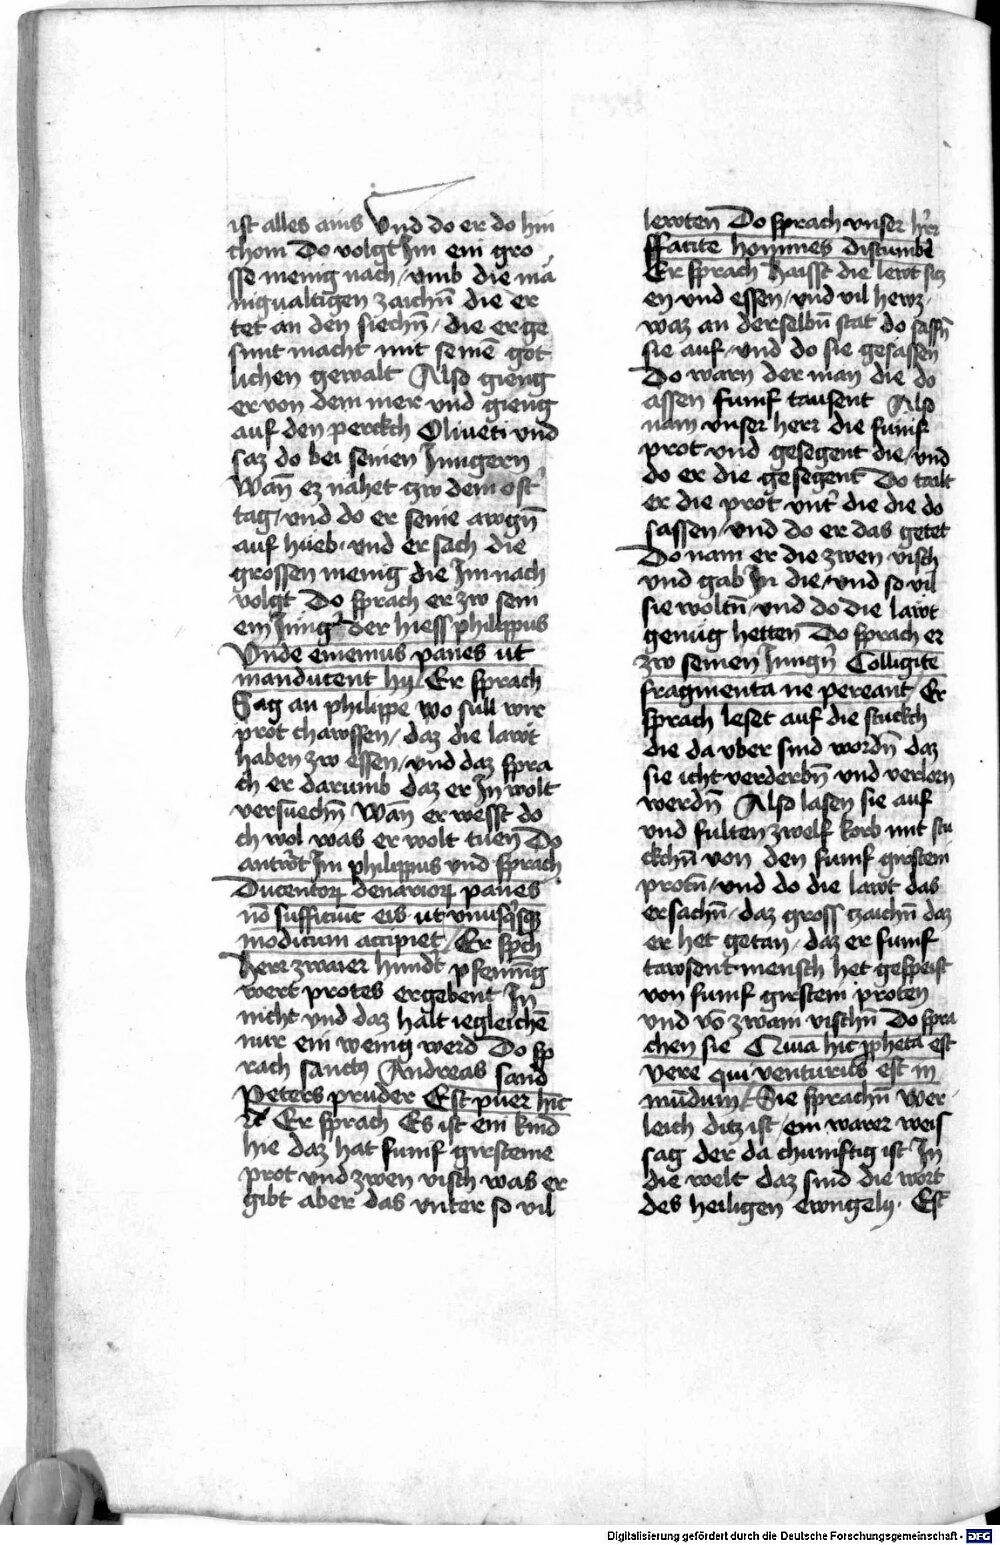 ist alles ains Und do er do hin
chom Do volgt Im ein gro
sse menig nach / umb die ma
nigualtigen zaichn̄ die er
tet an den siechn̄ / die er ge
sunt macht mit seinē got
lichen gewalt Also gieng
er von dem mer vnd gieng
auf den perckch Oliueti vnd
saz do bei seinen Jungern
Wan̄ ez nahet czw dem ost̉
tag / vnd do er seine awgn̄
auf hueb · vnd er sach die
grossen menig die Im nach
volgt Do sprach er zw sein
em Jung̉ der hiess philippus
Unde ememus panes ut
manducent hij / Er sprach
Sag an philippe wo sull wir
prot chawffen / daz die lawt
haben zw essen / vnd daz spra
ch er darumb daz er In wolt
versuechn̄ Wan̄ er wesst do
ch wol was er wolt tuen Do
antwort Im philippus vnd sprach
Ducentorꝝ denariorꝝ panes
nō sufficiut eis ut vnusqͥsqꝫ
modicum accipiet / Er spch
herr zwaier hundt pfenning
wert protes ergebent In
nicht vnd daz halt iegleichē
nur ein wenig werd Do sp
rach sanctꝰ Andreas sand
Peters pruder Est puer hic
Er sprach Es ist ein kind
hie daz hat funif girsteine
prot vnd zwen visch was er
gibt aber das vnter so vil
lewten Do sprach vnser h̉r
ffacite homines discumbē
Er sprach haisst die lewt sitz
en vnd essen / vnd vil hewz ·
waz an derselbn̄ stat do sassn̄
sie auf / vnd do sie gesassen
Do warn der man die do
assen funif tausent Also
nam vnser herr die funif
prot vnd gesegent die / vnd
do er die gesegent Do tailt
er die prot vnt̉ die die do
sassen / vnd do er das getet
Do nam er die zwen visch
vnd gab In die / vnd so vil
sie woltn̄ / vnd do die lawt
genug hetten Do sprach er
zw seinen Jungn̉ Colligite
fragmenta ne pereant / Er
sprach leset auf die stuckch
die da vber sind wordn̄ daz
sie icht verderbn̄ vnd verlorn
werdn̄ Also lasen sie auf
vnd fulten zwelf korb mit stu
ckchn̄ von den funif girstein
protn̄ / vnd do die lawt das
ersachn̄ / daz gross czaichn̄ daz
er het getan / daz er funif
tawsent mensch het gespeist
von funif girstein proten
vnd vō zwain vischn̄ Do spra
chen sie Quia hic ꝓpheta est
vere qui venturus est in
mūdum / Sie sprachn̄ wer ·
leich ditz ist / ein warer weis
sag der da chunftig ist In
die welt daz sind die wort
des heiligen ewngelij · Est
Digitalisierung gefördert durch die Deutsche Forschungsgemeinschaft - DFG